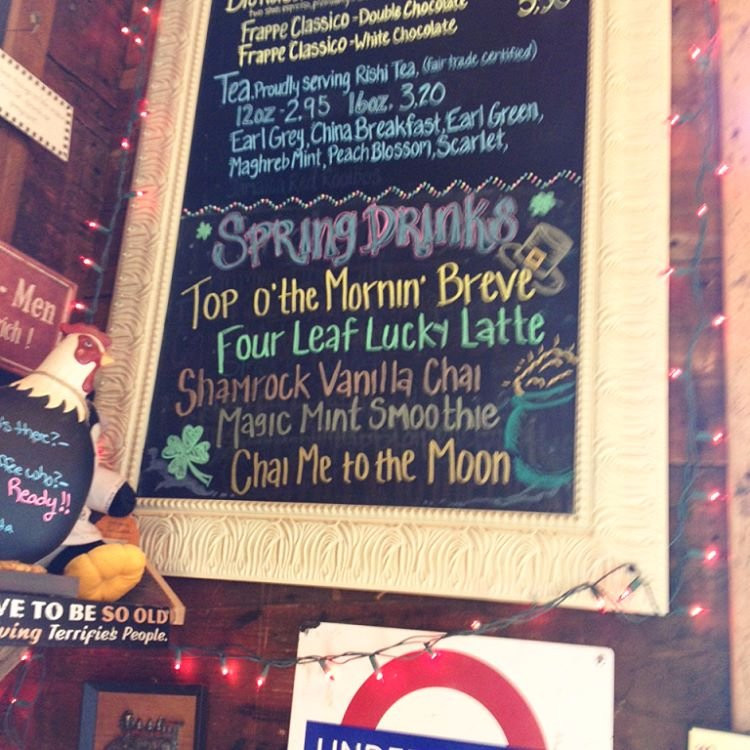 Frappe Classico - Double Chocolate
Frappe Classico - White Chocolate
Tea. Proudly serving Rishi Tea, (fair trade certified)
12oz - 2.95 16oz. 3.20
Earl Grey, China Breakfast, Earl Green,
Maghreb Mint, Peach Blossom, Scarlet,
Spring Drinks
Top o' the Mornin' Breve
Four Leaf Lucky Latte
Shamrock Vanilla Chai
Magic Mint Smoothie
Chai Me to the Moon
- Men
ich!
there?-
who?-
Ready!!
VE TO BE SO OLD
ving Terrifies People.
UNDE